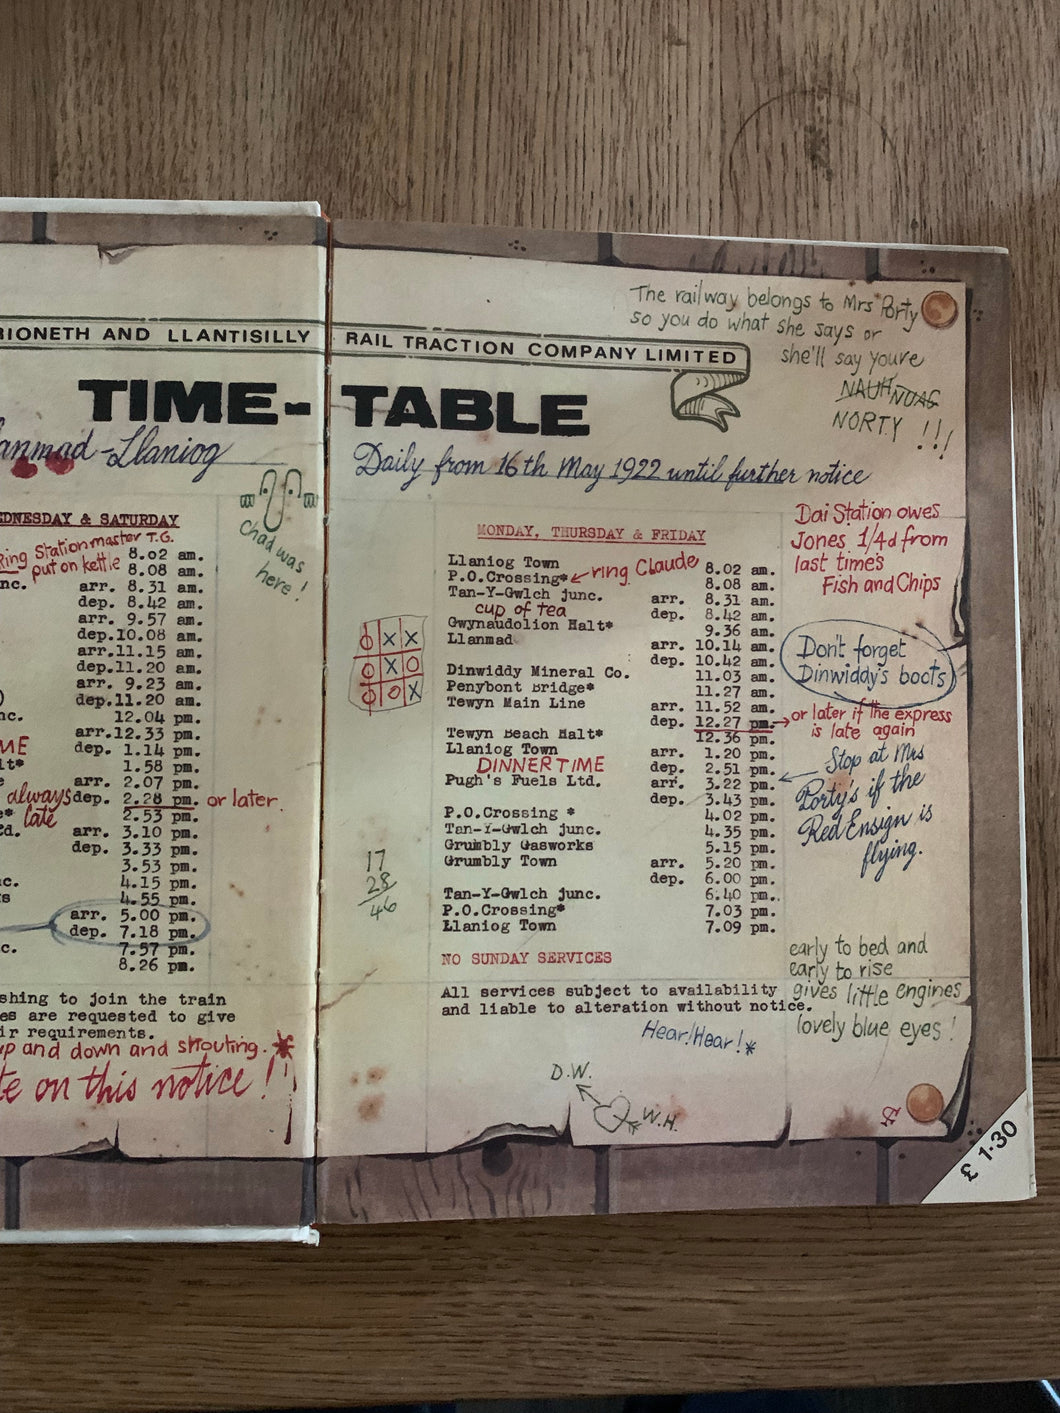 The railway belongs to Mrs Porty
so you do what she says or
she'll say youre
NAUH NOAG
NORTY !!!
IONETH AND LLANTISILLY RAIL TRACTION COMPANY LIMITED
TIME-TABLE
anmad-Llaniog
Daily from 16th May 1922 until further notice
DNESDAY & SATURDAY
Ring Stationmaster T.G.
put on kettle
8.02 am.
8.08 am.
nc. arr. 8.31 am.
dep. 8.42 am.
arr. 9.57 am.
dep.10.08 am.
arr.11.15 am.
dep.11.20 am.
arr. 9.23 am.
) dep.11.20 am.
nc. 12.04 pm.
arr.12.33 pm.
ME dep. 1.14 pm.
lt* 1.58 pm.
e arr. 2.07 pm.
always dep. 2.28 pm. or later.
e* late 2.53 pm.
d. arr. 3.10 pm.
dep. 3.33 pm.
3.53 pm.
c. 4.15 pm.
s 4.55 pm.
arr. 5.00 pm.
dep. 7.18 pm.
c. 7.57 pm.
8.26 pm.
shing to join the train
es are requested to give
ir requirements.
up and down and shouting.*
te on this notice!
Chad was
here!
O X X
O X O
O O X
17
28
46
MONDAY, THURSDAY & FRIDAY
Llaniog Town 8.02 am.
P.O.Crossing* ring Claude 8.08 am.
Tan-Y-Gwlch junc. arr. 8.31 am.
cup of tea dep. 8.42 am.
Gwynaudolion Halt* 9.36 am.
Llanmad arr. 10.14 am.
dep. 10.42 am.
Dinwiddy Mineral Co. 11.03 am.
Penybont Bridge* 11.27 am.
Tewyn Main Line arr. 11.52 am.
dep. 12.27 pm.
Tewyn Beach Halt* 12.36 pm.
Llaniog Town arr. 1.20 pm.
DINNERTIME dep. 2.51 pm.
Pugh's Fuels Ltd. arr. 3.22 pm.
dep. 3.43 pm.
P.O.Crossing * 4.02 pm.
Tan-Y-Gwlch junc. 4.35 pm.
Grumbly Gasworks 5.15 pm.
Grumbly Town arr. 5.20 pm.
dep. 6.00 pm.
Tan-Y-Gwlch junc. 6.40 pm.
P.O.Crossing* 7.03 pm.
Llaniog Town 7.09 pm.
NO SUNDAY SERVICES
All services subject to availability
and liable to alteration without notice.
Hear!Hear!*
D.W.
W.H.
Dai Station owes
Jones 1/4d from
last time's
Fish and Chips
Don't forget
Dinwiddy's boots
or later if the express
is late again
Stop at Mrs
Porty's if the
Red Ensign is
flying.
early to bed and
early to rise
gives little engines
lovely blue eyes!
£ 1·30